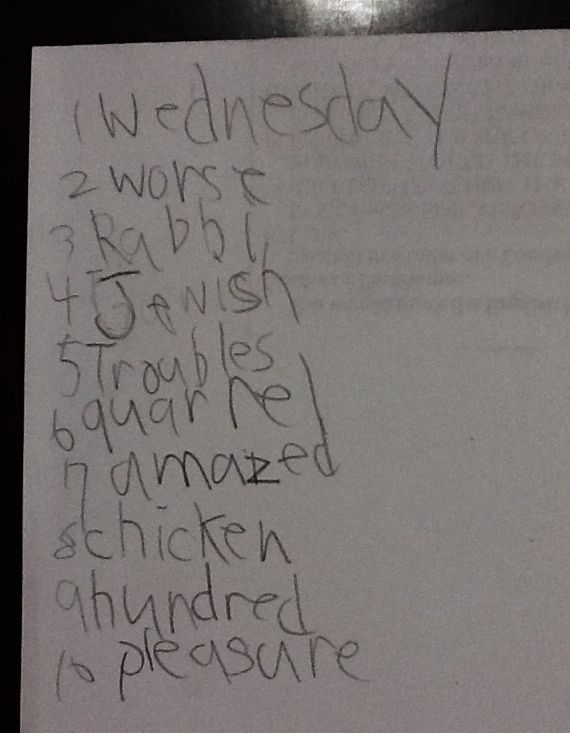 1 Wednesday
2 worse
3 Rabbi
4 Jewish
5 Troubles
6 quarrel
7 amazed
8 chicken
9 hundred
10 pleasure